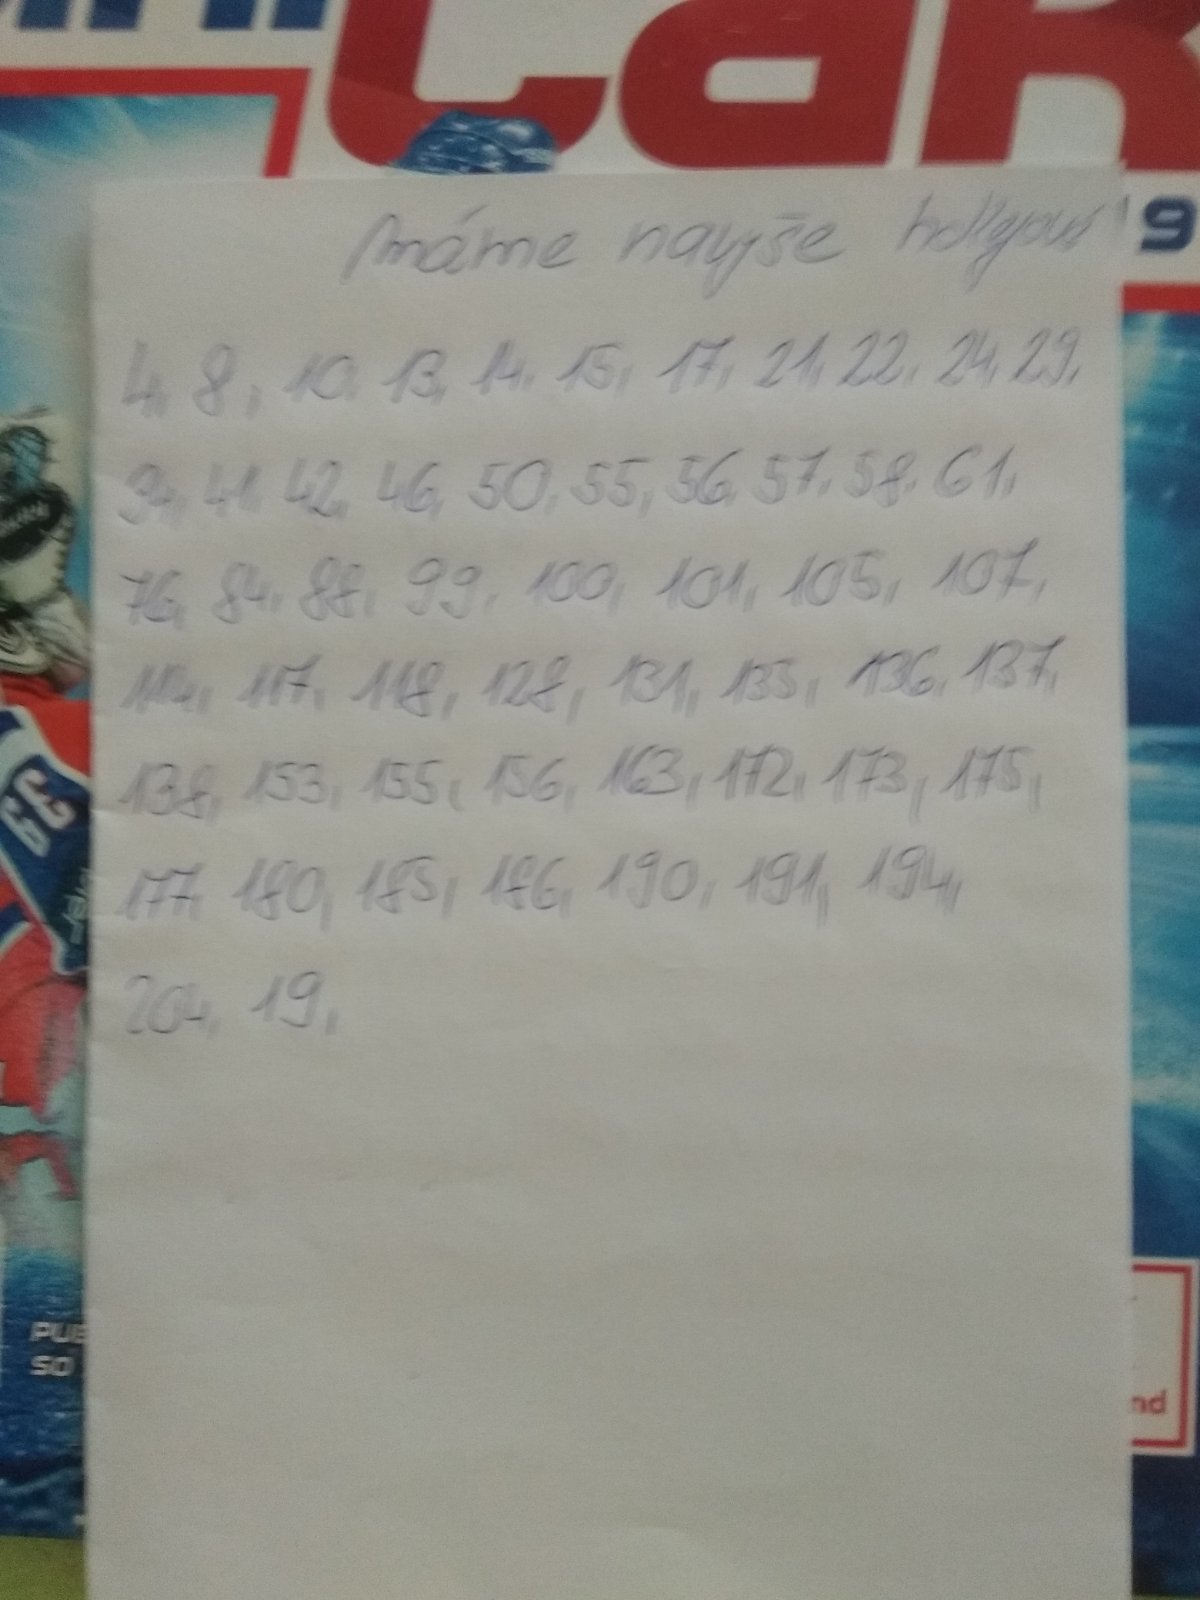 máme navyše hokejové
4, 8, 10, 13, 14, 15, 17, 21, 22, 24, 29,
41, 42, 46, 50, 55, 56, 57, 58, 61,
76, 84, 88, 99, 100, 101, 105, 107,
114, 117, 118, 128, 131, 136, 137,
138, 153, 155, 156, 163, 172, 173, 175,
177, 180, 185, 186, 190, 191, 194,
204, 19,
39